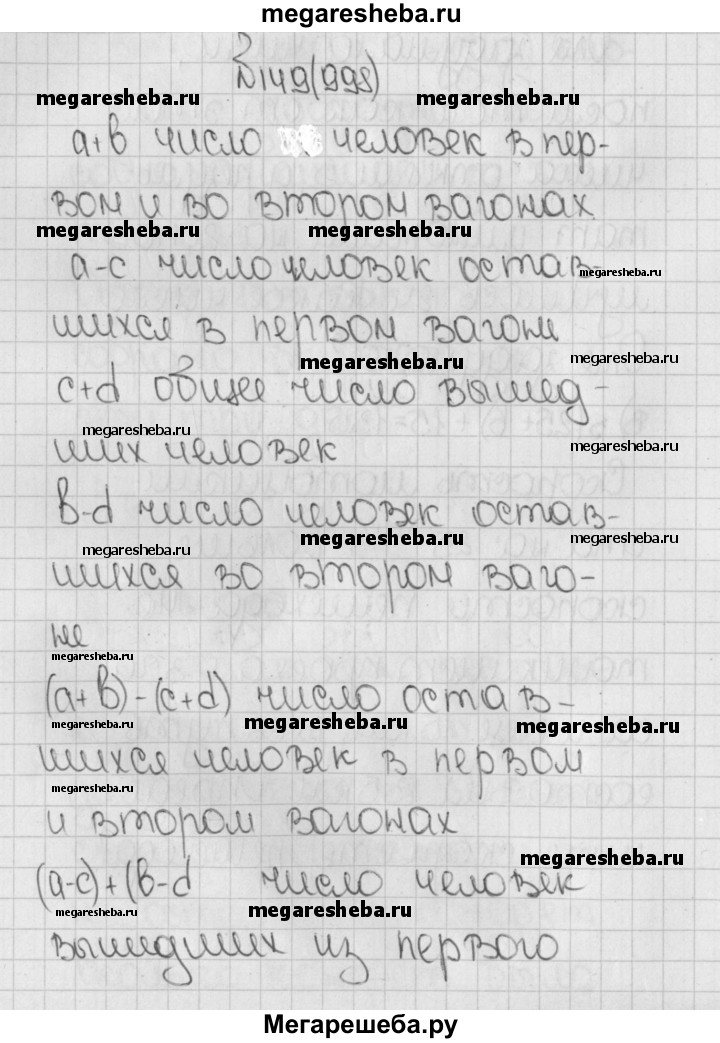 megaresheba.ru
№149(998)
megaresheba.ru megaresheba.ru
a+b число человек в пер-
вом и во втором вагонах
megaresheba.ru megaresheba.ru
a-c число человек остав-
megaresheba.ru
шихся в первом вагоне
megaresheba.ru megaresheba.ru
c+d общее число вышед-
megaresheba.ru
ших человек
megaresheba.ru
b-d число человек остав-
megaresheba.ru megaresheba.ru megaresheba.ru
шихся во втором ваго-
не
megaresheba.ru
(a+b)-(c+d) число остав-
megaresheba.ru megaresheba.ru megaresheba.ru
шихся человек в первом
megaresheba.ru
и втором вагонах
megaresheba.ru
(a-c)+(b-d число человек
megaresheba.ru megaresheba.ru
вышедших из первого
Мегарешеба.ру